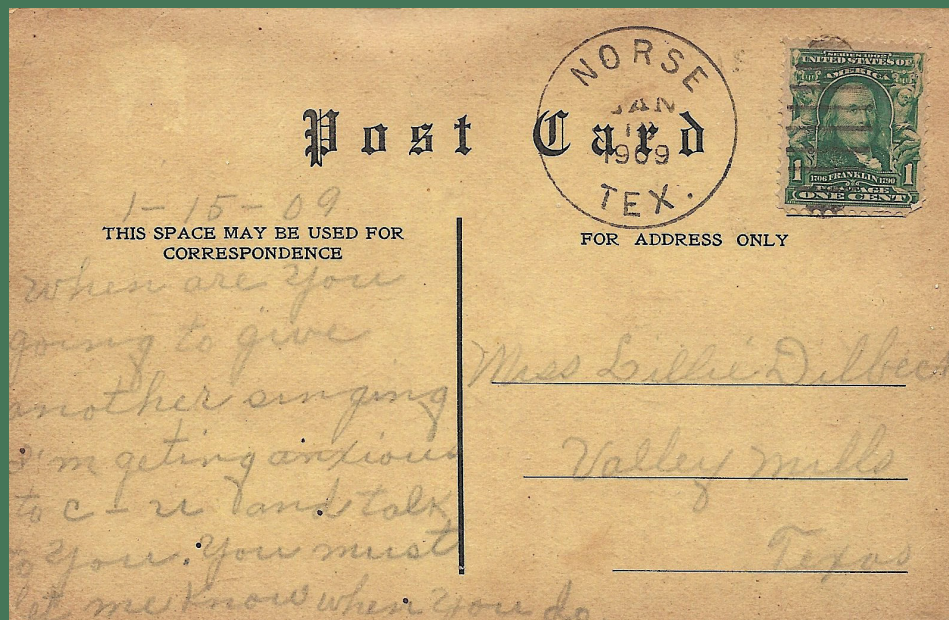 Post Card
NORSE
JAN
1909
TEX.
SERIES 1902
UNITED STATES OF
AMERICA
1 1706 FRANKLIN 1790 1
POSTAGE
ONE CENT
1-15-09
THIS SPACE MAY BE USED FOR
CORRESPONDENCE
When are you
going to give
another singing
I'm geting anxious
to c-u and talk
to you. You must
let me know when you do
FOR ADDRESS ONLY
Miss Lillie Dilbeck
Valley Mills
Texas